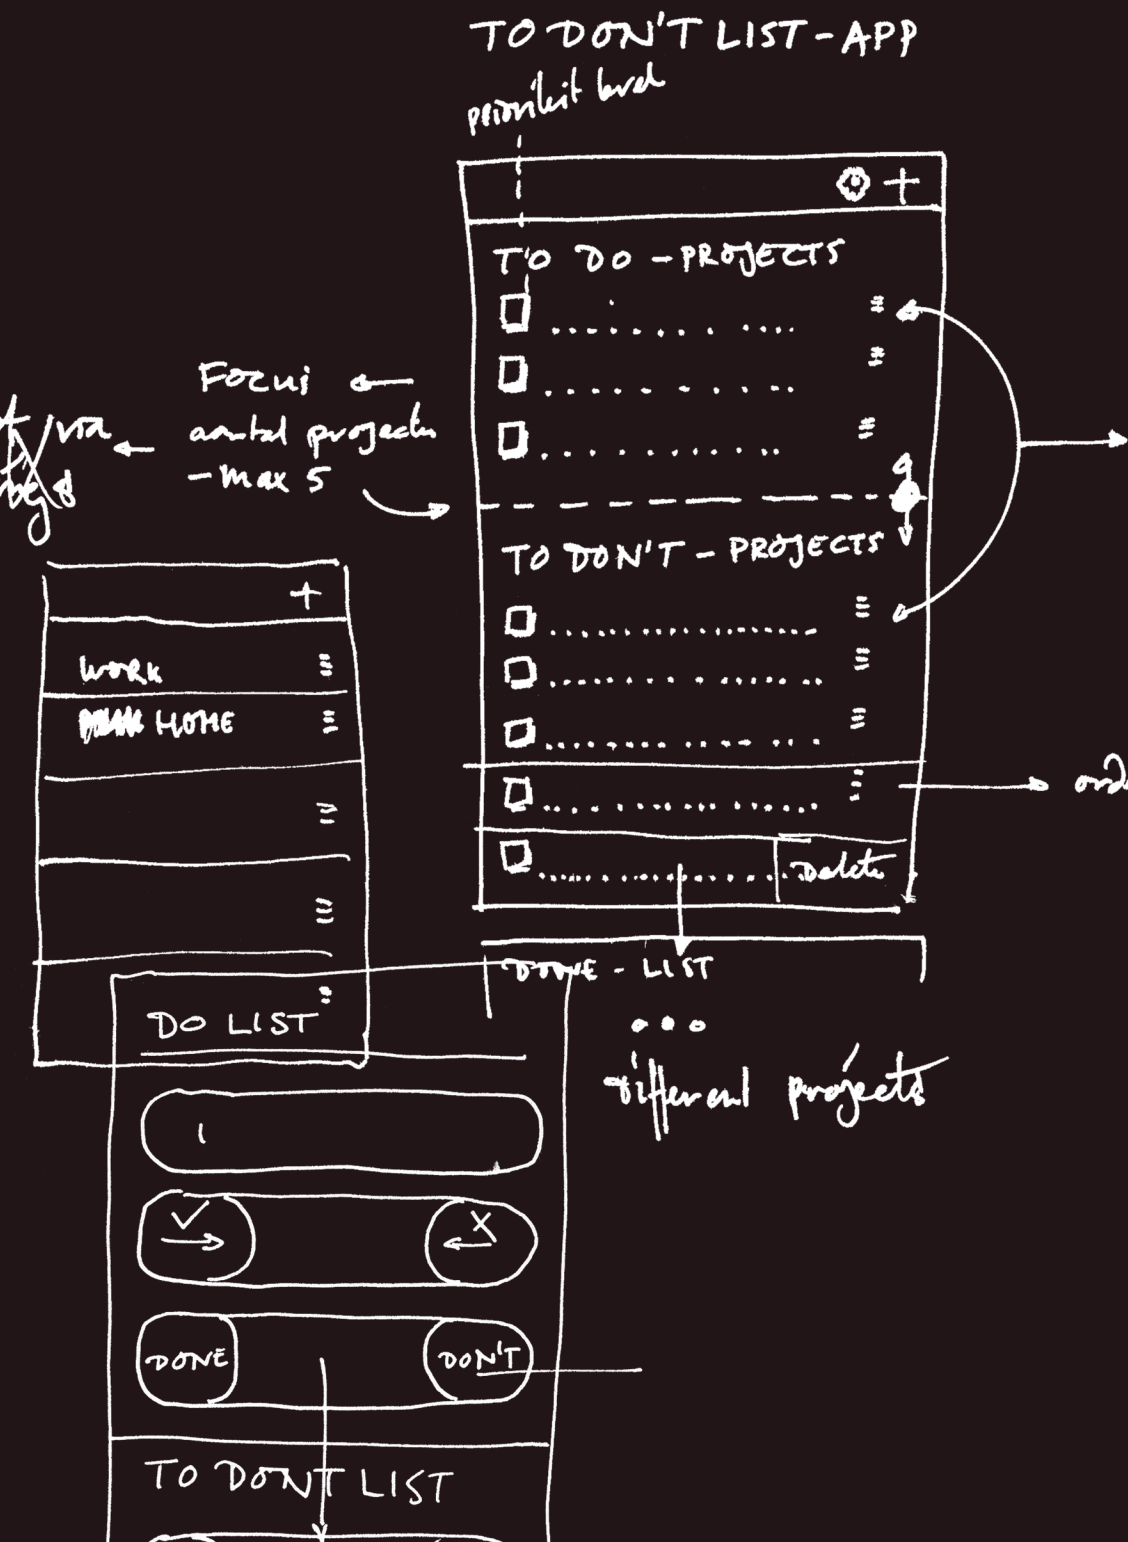 TO DON'T LIST - APP
prioriteit level
TO DO - PROJECTS
Focus
aantal projecten
- max 5
via
TO DON'T - PROJECTS
WORK
HOME
Delete
DONE - LIST
different projects
DO LIST
DONE
DON'T
TO DONT LIST